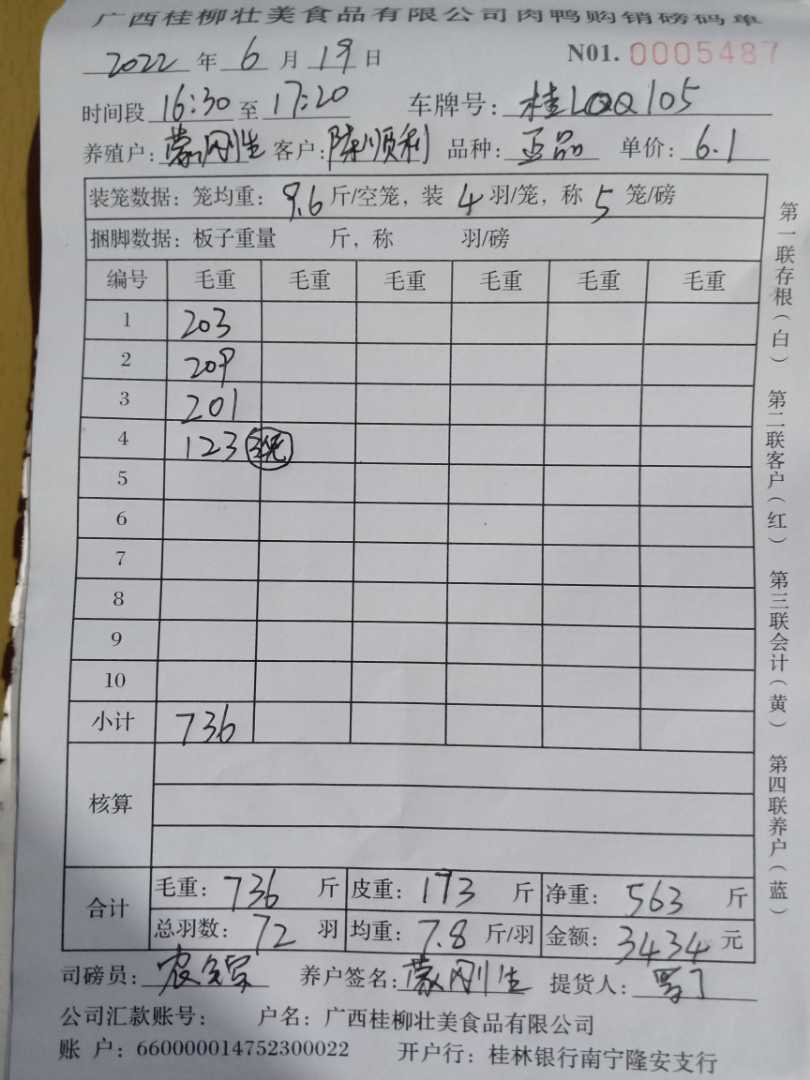 广西桂柳壮美食品有限公司肉鸭购销磅码单
2022 年 6 月 19 日 N01. 0005487
时间段 16:30 至 17:20 车牌号: 桂LQQ105
养殖户: 蒙刚生 客户: 陈顺利 品种: 正品 单价: 6.1
装笼数据: 笼均重: 9.6 斤/空笼, 装 4 羽/笼, 称 5 笼/磅
捆脚数据: 板子重量 斤, 称 羽/磅
编号 毛重 毛重 毛重 毛重 毛重 毛重
1 203
2 209
3 201
4 123
5
6
7
8
9
10
小计 736
核算
合计 毛重: 736 斤 皮重: 173 斤 净重: 563 斤
总羽数: 72 羽 均重: 7.8 斤/羽 金额: 3434 元
司磅员: 养户签名: 蒙刚生 提货人:
公司汇款账号: 户名: 广西桂柳壮美食品有限公司
账 户: 660000014752300022 开户行: 桂林银行南宁隆安支行
第一联存根(白) 第二联客户(红) 第三联会计(黄) 第四联养户(蓝)